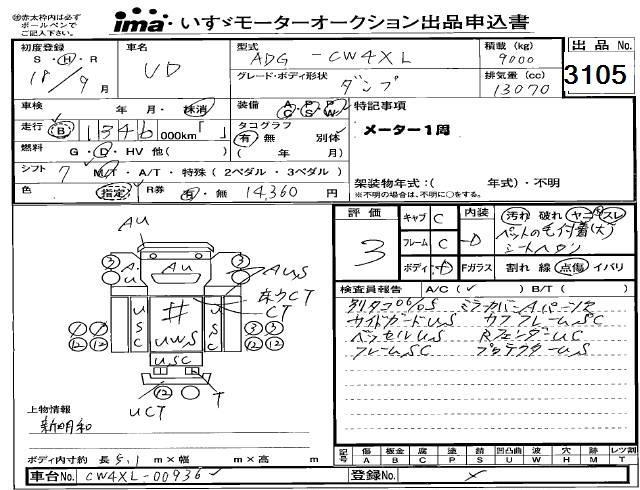 ※赤太枠内は必ずボールペンでご記入下さい。
ima・いすゞモーターオークション出品申込書
初度登録 S・H・R 18/9月
車名 UD
型式 ADG-CW4XL
グレード・ボディ形状 ダンプ
積載(kg) 9000
排気量(cc) 13070
出品No. 3105
車検 年 月・抹消
装備 AC PS PW
走行 B 1346 000km「 」
タコグラフ 有 無 別体 ( 年 月)
燃料 G・D・HV 他( )
シフト 7 MT・A/T・特殊(2ペダル・3ペダル)
色 指定 R券 有・無 14,360 円
特記事項
メーター1周
架装物年式:( 年式)・不明
※不明の場合は、不明に○をする。
評価 3
キャブ C
フレーム C
ボディ
内装 D 汚れ 破れ ヤニ スレ
ペットの毛付着(大)
シートヘタリ
Fガラス 割れ 線 点傷 イバリ
検査員報告 A/C(✓) B/T( )
サイドガードUS
ベッセルUS RフェンダーUC
フレームSC プロテクターUS
AU
3 A・U AU 3
AUS
CT
CT
USC # UWS USC
12 12 12 12
USC
12 12
UCT T
上物情報
新明和
ボディ内寸約 長 5.1 m×幅 m×高 m
記号 傷A 板金B 腐C 塗P 錆S 凹凸曲U 波W 穴H 跡M レンズ割T
車台No. CW4XL-00936
登録No.